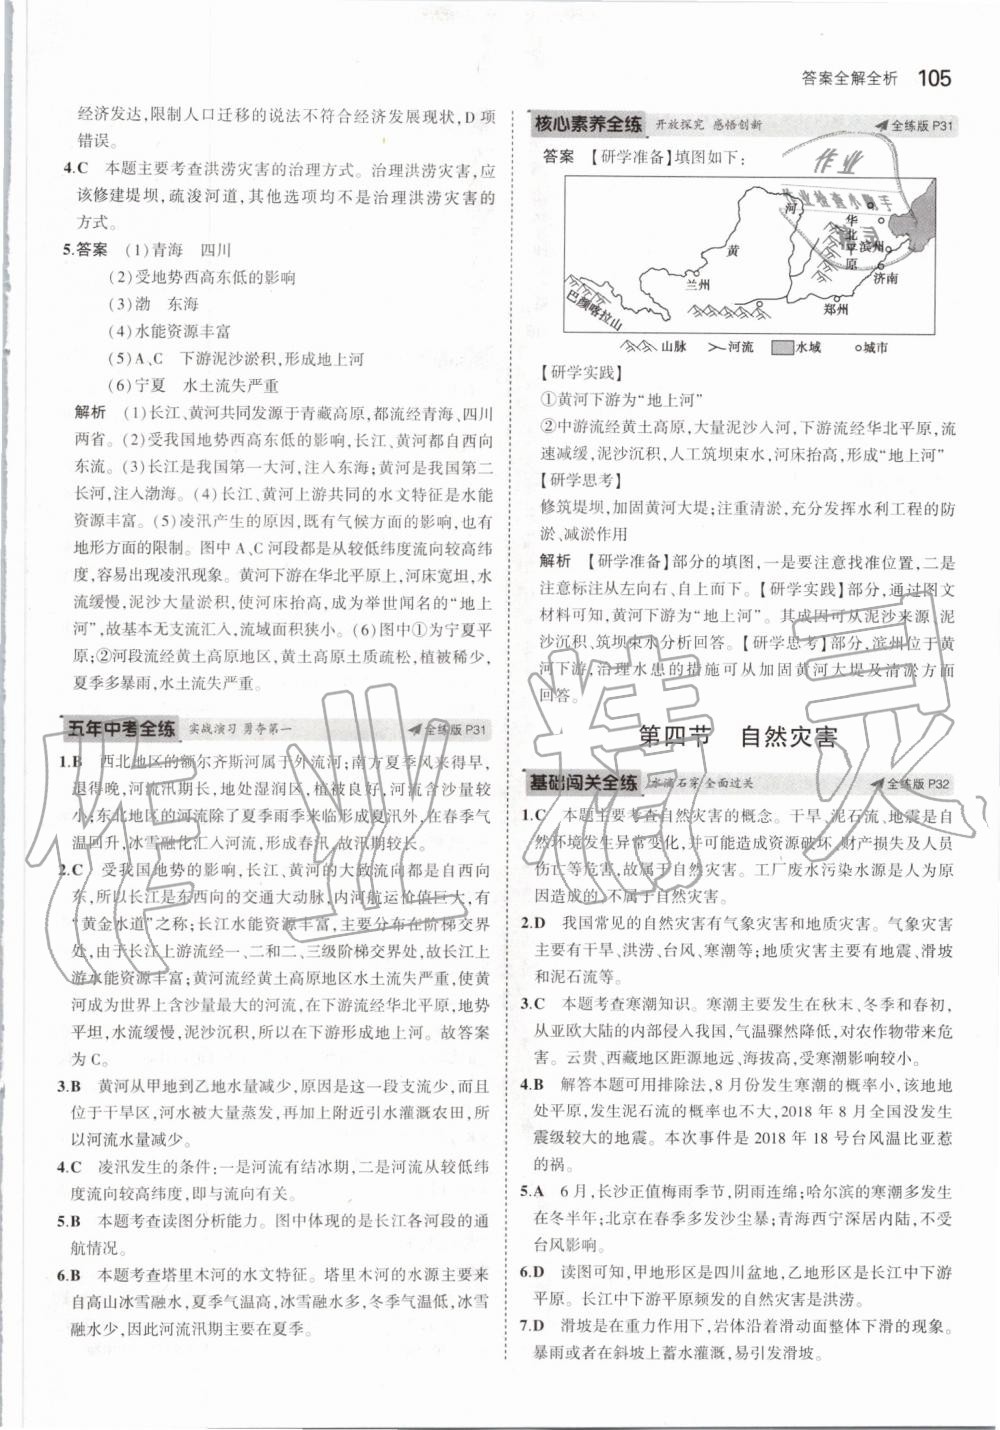 答案全解全析 105
经济发达,限制人口迁移的说法不符合经济发展现状,D 项
错误。
4.C 本题主要考查洪涝灾害的治理方式。治理洪涝灾害,应
该修建堤坝,疏浚河道,其他选项均不是治理洪涝灾害的
方式。
5.答案 (1)青海 四川
(2)受地势西高东低的影响
(3)渤 东海
(4)水能资源丰富
(5)A、C 下游泥沙淤积,形成地上河
(6)宁夏 水土流失严重
解析 (1)长江、黄河共同发源于青藏高原,都流经青海、四川
两省。(2)受我国地势西高东低的影响,长江、黄河都自西向
东流。(3)长江是我国第一大河,注入东海;黄河是我国第二
长河,注入渤海。(4)长江、黄河上游共同的水文特征是水能
资源丰富。(5)凌汛产生的原因,既有气候方面的影响,也有
地形方面的限制。图中 A、C 河段都是从较低纬度流向较高纬
度,容易出现凌汛现象。黄河下游在华北平原上,河床宽坦,水
流缓慢,泥沙大量淤积,使河床抬高,成为举世闻名的“地上
河”,故基本无支流汇入,流域面积狭小。(6)图中①为宁夏平
原;②河段流经黄土高原地区,黄土高原土质疏松,植被稀少,
夏季多暴雨,水土流失严重。
五年中考全练 实战演习 勇夺第一 全练版 P31
1.B 西北地区的额尔齐斯河属于外流河;南方夏季风来得早,
退得晚,河流汛期长,地处湿润区,植被良好,河流含沙量较
小;东北地区的河流除了夏季雨季来临形成夏汛外,在春季气
温回升,冰雪融化汇入河流,形成春汛,故汛期较长。
2.C 受我国地势的影响,长江、黄河的大致流向都是自西向
东,所以长江是东西向的交通大动脉,内河航运价值巨大,有
“黄金水道”之称;长江水能资源丰富,主要分布在阶梯交界
处,由于长江上游流经一、二和二、三级阶梯交界处,故长江上
游水能资源丰富;黄河流经黄土高原地区水土流失严重,使黄
河成为世界上含沙量最大的河流,在下游流经华北平原,地势
平坦,水流缓慢,泥沙沉积,所以在下游形成地上河。故答案
为 C。
3.B 黄河从甲地到乙地水量减少,原因是这一支流少,而且
位于干旱区,河水被大量蒸发,再加上附近引水灌溉农田,所
以河流水量减少。
4.C 凌汛发生的条件:一是河流有结冰期,二是河流从较低纬
度流向较高纬度,即与流向有关。
5.B 本题考查读图分析能力。图中体现的是长江各河段的通
航情况。
6.B 本题考查塔里木河的水文特征。塔里木河的水源主要来
自高山冰雪融水,夏季气温高,冰雪融水多,冬季气温低,冰雪
融水少,因此河流汛期主要在夏季。
核心素养全练 开放探究 感悟创新 全练版 P31
答案 【研学准备】填图如下:
河
华
北
平
原
黄
滨州
济南
兰州
郑州
巴颜喀拉山
山脉 河流 水域 城市
【研学实践】
①黄河下游为“地上河”
②中游流经黄土高原,大量泥沙入河,下游流经华北平原,流
速减缓,泥沙沉积,人工筑坝束水,河床抬高,形成“地上河”
【研学思考】
修筑堤坝,加固黄河大堤;注重清淤,充分发挥水利工程的防
淤、减淤作用
解析 【研学准备】部分的填图,一是要注意找准位置,二是
注意标注从左向右、自上而下。【研学实践】部分,通过图文
材料可知,黄河下游为“地上河”。其成因可从泥沙来源、泥
沙沉积、筑坝束水分析回答。【研学思考】部分,滨州位于黄
河下游,治理水患的措施可从加固黄河大堤及清淤方面
回答。
第四节 自然灾害
基础闯关全练 水滴石穿 全面过关 全练版 P32
1.C 本题主要考查自然灾害的概念。干旱、泥石流、地震是自
然环境发生异常变化,并可能造成资源破坏、财产损失及人员
伤亡等危害,故属于自然灾害。工厂废水污染水源是人为原
因造成的,不属于自然灾害。
2.D 我国常见的自然灾害有气象灾害和地质灾害。气象灾害
主要有干旱、洪涝、台风、寒潮等;地质灾害主要有地震、滑坡
和泥石流等。
3.C 本题考查寒潮知识。寒潮主要发生在秋末、冬季和春初,
从亚欧大陆的内部侵入我国,气温骤然降低,对农作物带来危
害。云贵、西藏地区距源地远、海拔高,受寒潮影响较小。
4.B 解答本题可用排除法,8 月份发生寒潮的概率小,该地地
处平原,发生泥石流的概率也不大,2018 年 8 月全国没发生
震级较大的地震。本次事件是 2018 年 18 号台风温比亚惹
的祸。
5.A 6 月,长沙正值梅雨季节,阴雨连绵;哈尔滨的寒潮多发生
在冬半年;北京在春季多发沙尘暴;青海西宁深居内陆,不受
台风影响。
6.D 读图可知,甲地形区是四川盆地,乙地形区是长江中下游
平原。长江中下游平原频发的自然灾害是洪涝。
7.D 滑坡是在重力作用下,岩体沿着滑动面整体下滑的现象。
暴雨或者在斜坡上蓄水灌溉,易引发滑坡。
作业
作业检查小助手
精灵
作业精灵